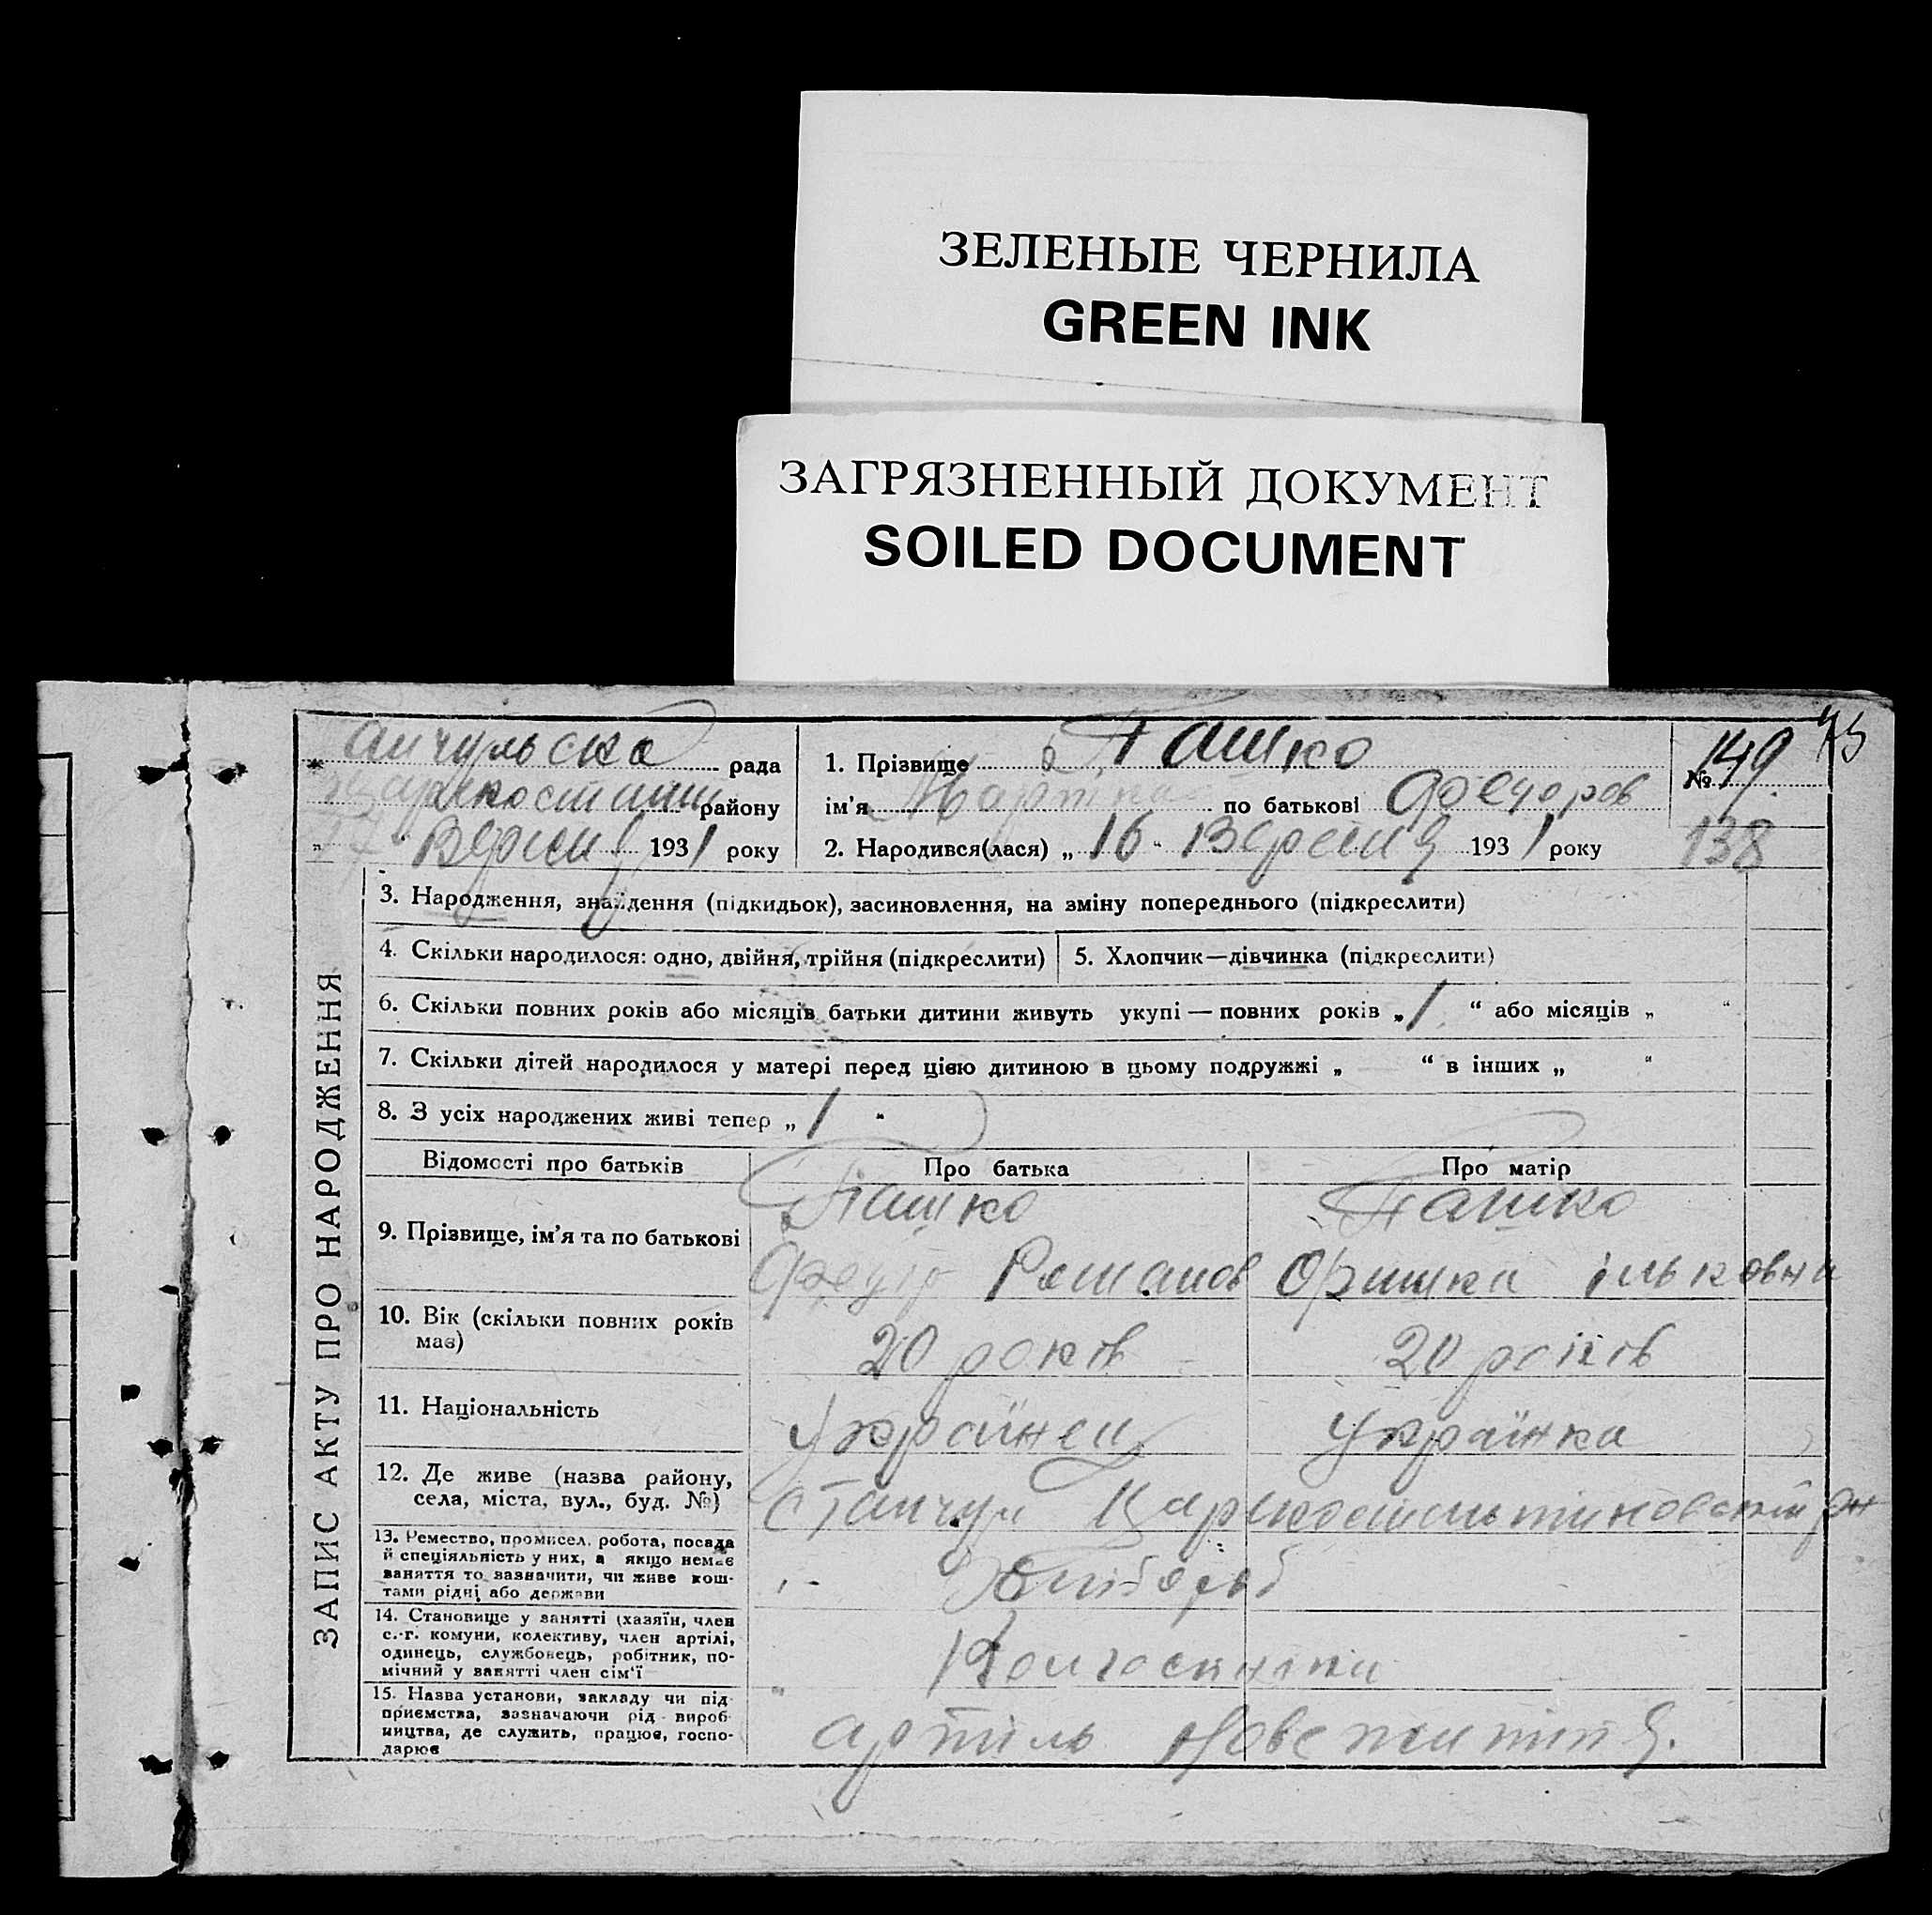 ЗЕЛЕНЫЕ ЧЕРНИЛА
GREEN INK
ЗАГРЯЗНЕННЫЙ ДОКУМЕНТ
SOILED DOCUMENT
75
рада
району
Вересня 1931 року
1. Прізвище Пашко
ім'я по батькові Федоров
2. Народився(лася) „ 16 " Вересня 1931 року
№ 149
138
ЗАПИС АКТУ ПРО НАРОДЖЕННЯ
3. Народження, знайдення (підкидьок), засиновлення, на зміну попереднього (підкреслити)
4. Скільки народилося: одно, двійня, трійня (підкреслити)
5. Хлопчик—дівчинка (підкреслити)
6. Скільки повних років або місяців батьки дитини живуть укупі — повних років „ 1 “ або місяців „ “
7. Скільки дітей народилося у матері перед цією дитиною в цьому подружжі „ “ в інших „ “
8. З усіх народжених живі тепер „ 1 "
Відомості про батьків Про батька Про матір
9. Прізвище, ім'я та по батькові
Пашко
Федір Романов
Пашко
Оришка ільковна
10. Вік (скільки повних років
має)
20 років
20 років
11. Національність
Українец
Українка
12. Де живе (назва району,
села, міста, вул., буд. №)
13. Ремество, промисел, робота, посада
й спеціяльність у них, а якщо немає
заняття то зазначити, чи живе кош-
тами рідні або держави
Хлібороб
14. Становище у занятті (хазяїн, член
с.-г. комуни, колективу, член артілі,
одинець, службовець, робітник, по-
мічний у занятті член сім'ї
Колгоспники
15. Назва установи, закладу чи під-
приємства, зазначаючи рід вироб-
ництва, де служить, працює, госпо-
дарює
артіль Нове життя.